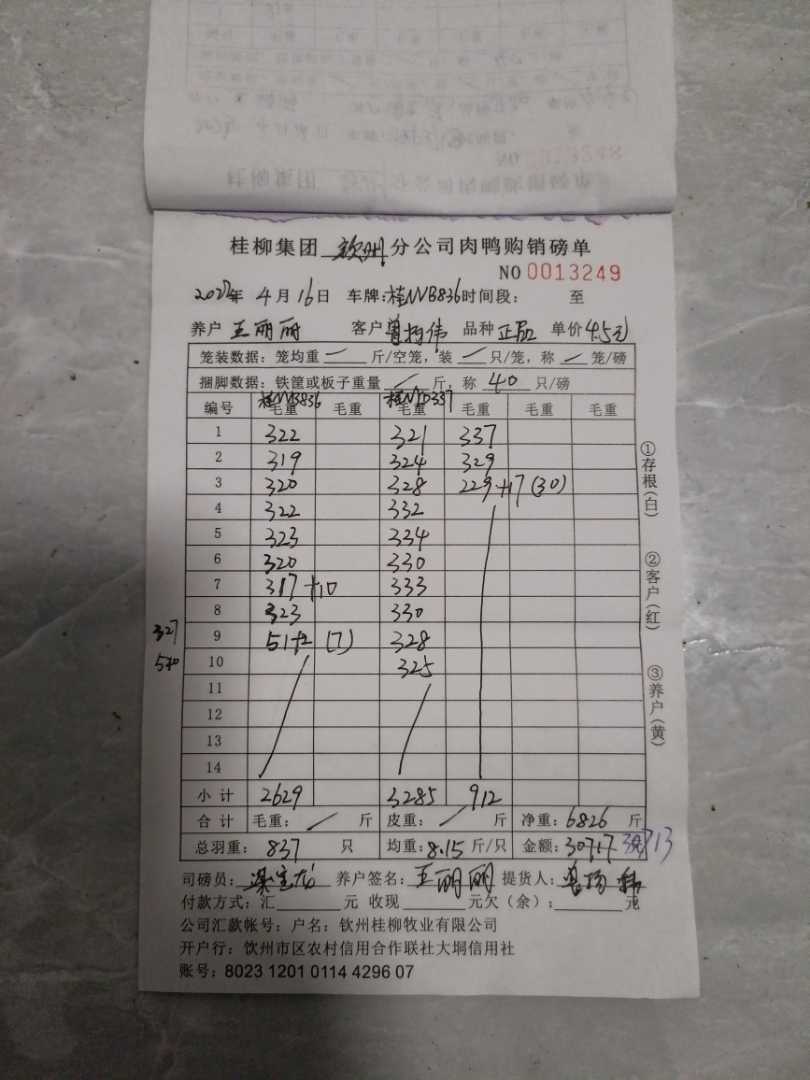 桂柳集团 钦州 分公司肉鸭购销磅单
NO 0013249
4月16日 车牌：桂NVB836 时间段： 至
养户 王丽丽 客户 曾 伟 品种 正品 单价 4.5元
笼装数据：笼均重 / 斤/空笼，装 / 只/笼，称 / 笼/磅
捆脚数据：铁筐或板子重量 / 斤，称 40 只/磅
桂NVB836 桂NYD337
编号 毛重 毛重 毛重 毛重 毛重 毛重
1 322 321 337
2 319 324 329
3 320 328 229+17(30)
4 322 332
5 323 334
6 320 330
7 317+10 333
8 323 330
327
9 51+2 (7) 328
540
10 325
11
12
13
14
小计 2629 3285 912
合计 毛重： / 斤 皮重： / 斤 净重：6826 斤
总羽重： 837 只 均重：8.15 斤/只 金额：30717 30713
司磅员： 养户签名：王丽丽 提货人：曾 伟
付款方式：汇 元 收现 元欠（余）： 元
公司汇款帐号；户名：钦州桂柳牧业有限公司
开户行：钦州市区农村信用合作联社大垌信用社
账号：8023 1201 0114 4296 07
①存根(白)
②客户(红)
③养户(黄)